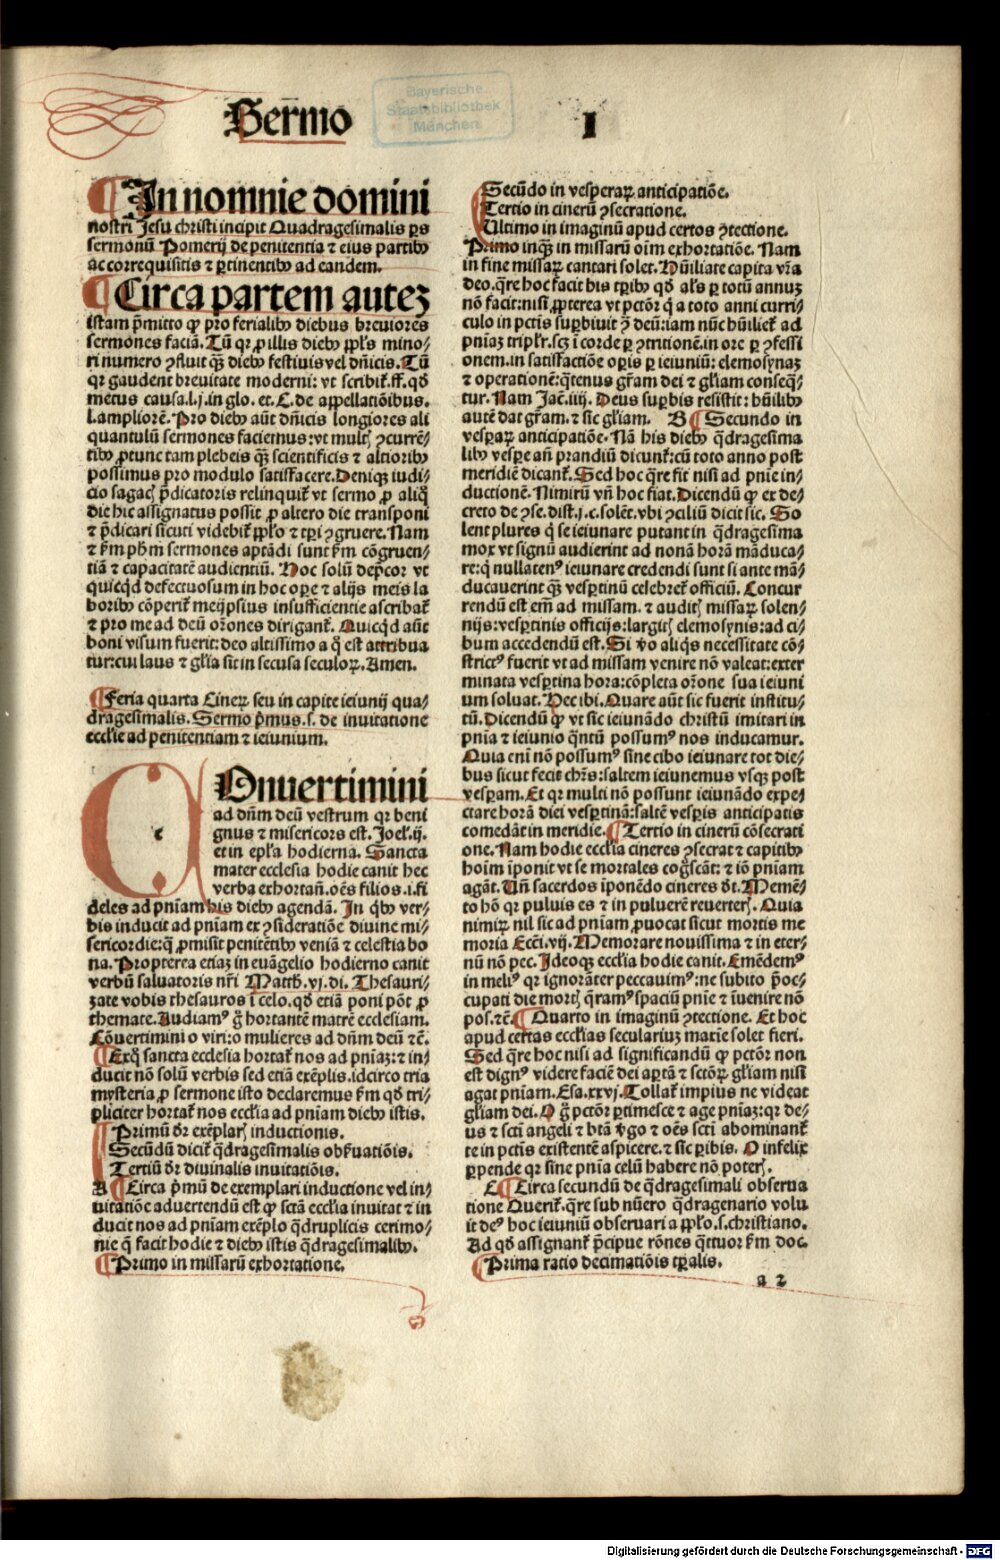 Sermo I
Bayerische
Staatsbibliothek
München
¶In nomnie domini
nostri Jesu christi incipit Quadragesimalis ꝑs
sermonū Pomerij de penitentia ⁊ eius partibꝰ
ac correquisitis ⁊ ꝑtinentibꝰ ad eandem.
¶Circa partem autez
istam p̄mitto ꝙ pro ferialibꝰ diebus breuiores
sermones faciā. Tū qꝛ ꝓ illis diebꝰ ppl̄s mino⸗
ri numero ꝯfluit qȝ diebꝰ festiuis vel dn̄icis. Tū
qꝛ gaudent breuitate moderni: vt scribit̄. ff. qd̄
metus causa. l. j. in glo. et. C. de appellatiōibus.
l. ampliorē. Pro diebꝰ aūt dn̄icis longiores ali
quantulū sermones faciemus: vt multꝭ ꝯcurrē⸗
tibꝰ ꝓtunc tam plebeis qȝ scientificis ⁊ altioribꝰ
possimus pro modulo satisfacere. Deniqȝ iudi⸗
cio sagacꝭ p̄dicatoris relinquit̄ vt sermo ꝓ aliq̄
die hic assignatus possit ꝓ altero die transponi
⁊ p̄dicari sicuti videbit̄ ppl̄o ⁊ tꝑi ꝯgruere. Nam
⁊ ẜm ph̄m sermones aptādi sunt ẜm cōgruen⸗
tiā ⁊ capacitatē audientiū. Hoc solū dep̄cor vt
quicq̄d defectuosum in hoc oꝑe ⁊ alijs meis la
boribꝰ cōperit̄ meijpsius insufficientie ascribat̄
⁊ pro me ad deū or̄ones dirigant̄. Quicq̄d aūt
boni visum fuerit: deo altissimo a q̄ est attribua
tur: cui laus ⁊ gl̄ia sit in secula seculoꝝ. Amen.
¶Feria quarta Cineꝝ seu in capite ieiunij qua⸗
dragesimalis. Sermo p̄mus. s. de inuitatione
eccl̄ie ad penitentiam ⁊ ieiunium.
c Onuertimini
ad dn̄m deū vestrum qꝛ beni
gnus ⁊ misericors est. Joel̄. ij.
et in epl̄a hodierna. Sancta
mater ecclesia hodie canit hec
verba exhortan̄. oēs filios. i. fi
deles ad pn̄iam his diebꝰ agendā. In qͥbꝰ ver⸗
bis inducit ad pn̄iam ex ꝯsideratiōe diuine mi⸗
sericordie: q̄ ꝓmisit penitētibꝰ veniā ⁊ celestia bo
na. Propterea etiaȝ in euāgelio hodierno canit
verbū saluatoris nr̄i Matth. vj. di. Thesauri⸗
zate vobis thesauros ī celo. qd̄ etiā poni pōt ꝓ
themate. Audiamꝰ g̊ hortantē matrē ecclesiam.
Cōuertimini o viri: o mulieres ad dn̄m deū ⁊c̄.
¶Exq̊ sancta ecclesia hortat̄ nos ad pn̄iaȝ: ⁊ in⸗
ducit nō solū verbis sed etiā exēplis. idcirco tria
mysteria ꝓ sermone isto declaremus ẜm qd̄ tri⸗
pliciter hortat̄ nos eccl̄ia ad pn̄iam diebꝰ istis.
Primū dr̄ exēplarꝭ inductionis.
Secūdū dicit̄ q̄dragesimalis obẜuatiōis.
Tertiū dr̄ diuinalis inuitatiōis.
A ¶Circa p̄mū de exemplari inductione vel in⸗
uitatiōe aduertendū est ꝙ sctā eccl̄ia inuitat ⁊ in
ducit nos ad pn̄iam exēplo q̄druplicis cerimo⸗
nie q̄ facit hodie ⁊ diebꝰ istis q̄dragesimalibꝰ.
¶Primo in missarū exhortatione.
Secūdo in vesperaꝝ anticipatiōe.
Tertio in cinerū ꝯsecratione.
Ultimo in imaginū apud certos ꝯtectione.
Primo inqȝ in missarū oīm exhortatiōe. Nam
in fine missaꝝ cantari solet. Hūiliate capita vr̄a
deo. q̄re hoc facit bis tꝑibꝰ qd̄ al̄s ꝑ totū annuȝ
nō facit: nisi ꝓpterea vt pctōr q̄ a toto anni curri⸗
culo in pctīs suꝑbiuit ꝯ̄ deū: iam nūc hūiliet̄ ad
pn̄iaȝ tripl̄r. sȝ ī corde ꝑ ꝯtritionē. in ore ꝑ ꝯfessi
onem. in satisfactiōe oꝑis ꝑ ieiuniū: elemosynaȝ
⁊ operationē: q̄tenus gr̄am dei ⁊ gl̄iam conseq̄⸗
tur. Nam Jac̄. iiij. Deus suꝑbis resistit: hūilibꝰ
autē dat gr̄am. ⁊ sic gl̄iam. B ¶Secundo in
vesꝑaꝝ anticipatiōe. Nā his diebꝰ q̄dragesima
libꝰ vesꝑe an̄ prandiū dicunt̄: cū toto anno post
meridiē dicant̄. Sed hoc q̄re fit nisi ad pn̄ie in⸗
ductionē. Nimirū vn̄ hoc fiat. Dicendū ꝙ ex de⸗
creto de ꝯse. dist. j. c. solēt. vbi ꝯciliū dicit sic. So
lent plures q̄ se ieiunare putant in q̄dragesima
mox vt signū audierint ad nonā horā māduca⸗
re: q̄ nullatenꝰ ieiunare credendi sunt si ante mā⸗
ducauerint qȝ vesꝑtinū celebret̄ officiū. Concur
rendū est em̄ ad missam. ⁊ auditꝭ missaꝝ solen⸗
nijs: vesꝑtinis officijs: largitꝭ elemosynis: ad ci⸗
bum accedendū est. Si v̊o aliqͥs necessitate cō⸗
strictꝰ fuerit vt ad missam venire nō valeat: exter
minata vesꝑtina hora: cōpleta or̄one sua ieiuni
um soluat. Hec ibi. Quare aūt sic fuerit institu⸗
tū. Dicendū ꝙ vt sic ieiunādo christū imitari in
pn̄ia ⁊ ieiunio q̄ntū possumꝰ nos inducamur.
Quia eni nō possumꝰ sine cibo ieiunare tot die⸗
bus sicut fecit chr̄s: saltem ieiunemus vsqȝ post
vesꝑam. Et qꝛ multi nō possunt ieiunādo expe⸗
ctare horā diei vesꝑtinā: saltē vesꝑis anticipatis
comedāt in meridie. ¶Tertio in cinerū cōsecrati
one. Nam hodie eccl̄ia cineres ꝯsecrat ⁊ capitibꝰ
hoīm īponit vt se mortales cog̊scāt: ⁊ iō pn̄iam
agāt. Un̄ sacerdos īponēdo cineres dt̄. Memē⸗
to hō qꝛ puluis es ⁊ in puluerē reuerterꝭ. Quia
nimiꝝ nil sic ad pn̄iam ꝓuocat sicut mortis me
moria Ecc̄i. vij. Memorare nouissima ⁊ in eter⸗
nū nō pec. Ideoqȝ eccl̄ia hodie canit. Emēdemꝰ
in meliꝰ qꝛ ignorāter peccauimꝰ: ne subito p̄oc⸗
cupati die mortꝭ q̄ramꝰ spaciū pn̄ie ⁊ īuenire nō
pos. ⁊c̄. ¶Quarto in imaginū ꝯtectione. Et hoc
apud certas eccl̄ias seculariuȝ maxīe solet fieri.
Sed q̄re hoc nisi ad significandū ꝙ pctōr non
est dignꝰ videre faciē dei aꝑtā ⁊ sctōꝝ gl̄iam nisi
agat pn̄iam. Esa. xxvj. Tollat̄ impius ne videat
gl̄iam dei. O g̊ pctōr ꝑtimesce ⁊ age pn̄iaȝ: qꝛ de⸗
us ⁊ scti angeli ⁊ btā v̊go ⁊ oēs scti abominant̄
te in pctīs existentē aspicere. ⁊ sic ꝑibis. O infelix
ꝑpende qꝛ sine pn̄ia celū habere nō poterꝭ.
C ¶Circa secundū de q̄dragesimali obserua
tione Querit̄. q̄re sub nūero q̄dragenario volu
it deꝰ hoc ieiuniū obseruari a ppl̄o. s. christiano.
Ad qd̄ assignant̄ p̄cipue rōnes q̄ttuor ẜm doc.
¶Prima ratio decimatiōis tꝑalis.
a 2
Digitalisierung gefördert durch die Deutsche Forschungsgemeinschaft - DFG